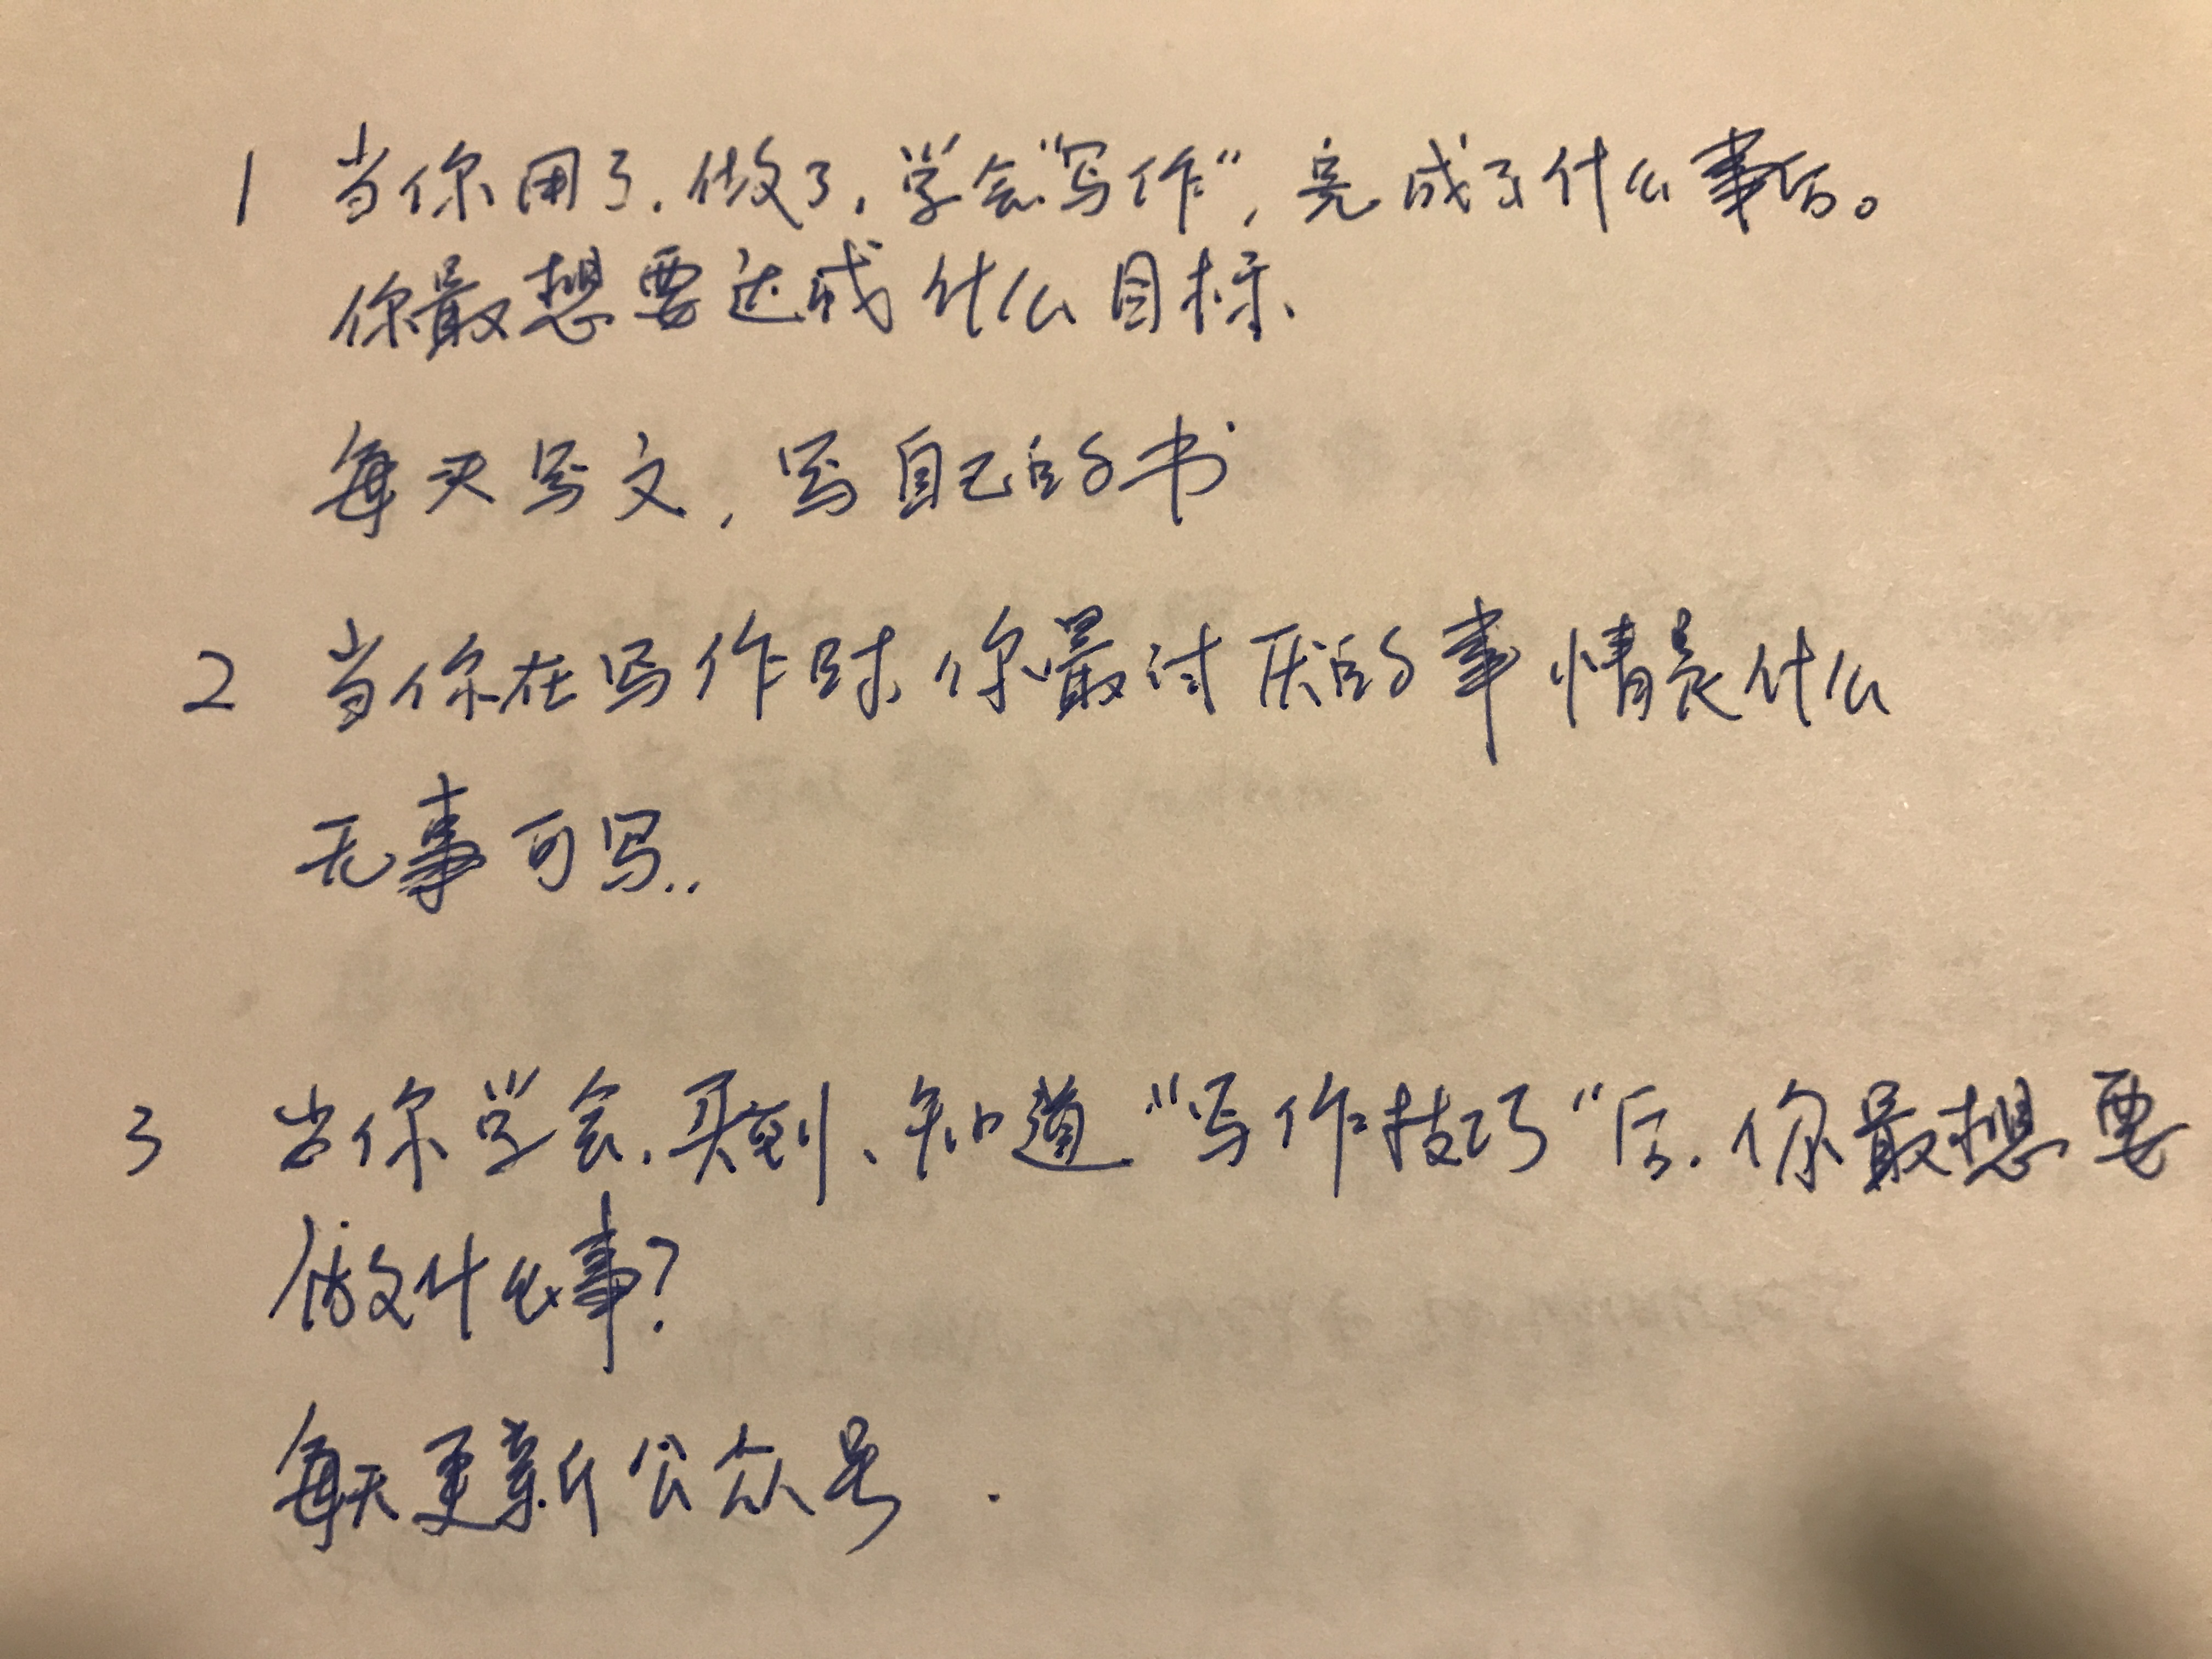 1 当你用了、做了、学会"写作"，完成了什么事后。
你最想要达成什么目标、
每天写文，写自己的书
2 当你在写作时、你最讨厌的事情是什么
无事可写..
3 当你学会、买到、知道"写作技巧"后、你最想要
做什么事？
每天更新公众号.